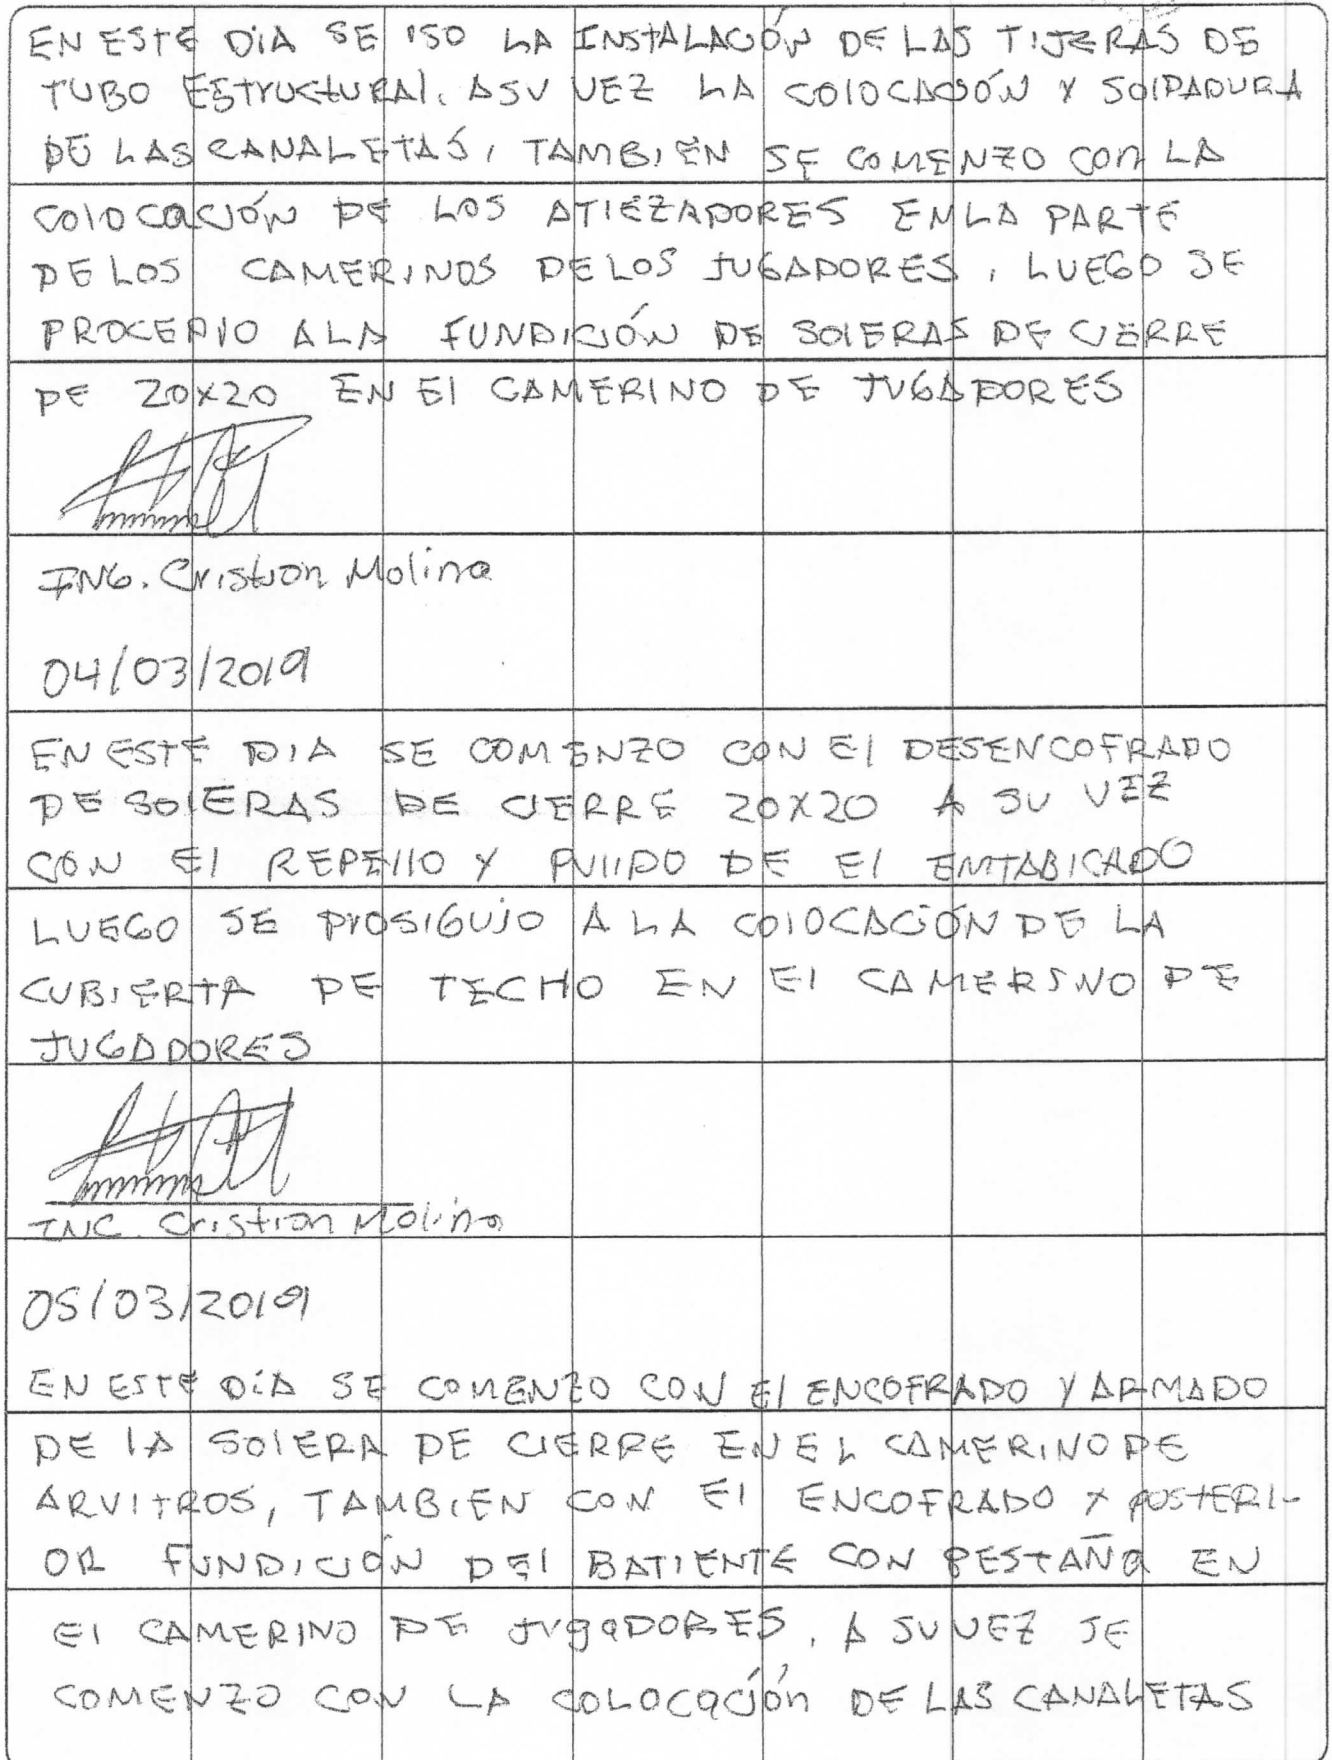 EN ESTE DIA SE ISO LA INSTALACIÓN DE LAS TIJERAS DE
TUBO ESTRUCTURAL. ASU VEZ LA COLOCACIÓN Y SOLDADURA
DE LAS CANALETAS, TAMBIEN SE COMENZO CON LA
COLOCACIÓN DE LOS ATIEZADORES EN LA PARTE
DE LOS CAMERINOS DE LOS JUGADORES, LUEGO SE
PROCEDIO A LA FUNDICIÓN DE SOLERAS DE CIERRE
DE 20X20 EN EL CAMERINO DE JUGADORES
ING. Cristian Molina
04/03/2019
EN ESTE DIA SE COMENZO CON EL DESENCOFRADO
DE SOLERAS DE CIERRE 20X20 A SU VEZ
CON EL REPELLO Y PULIDO DE EL EMTABICADO
LUEGO SE PROSIGUIO A LA COLOCACIÓN DE LA
CUBIERTA DE TECHO EN EL CAMERINO DE
JUGADORES
ING. Cristian Molina
05/03/2019
EN ESTE DIA SE COMENZO CON EL ENCOFRADO Y ARMADO
DE LA SOLERA DE CIERRE EN EL CAMERINO DE
ARVITROS, TAMBIEN CON EL ENCOFRADO Y POSTERI-
OR FUNDICIÓN DEL BATIENTE CON PESTAÑA EN
EL CAMERINO DE JUGADORES, A SU VEZ SE
COMENZO CON LA COLOCACIÓN DE LAS CANALETAS